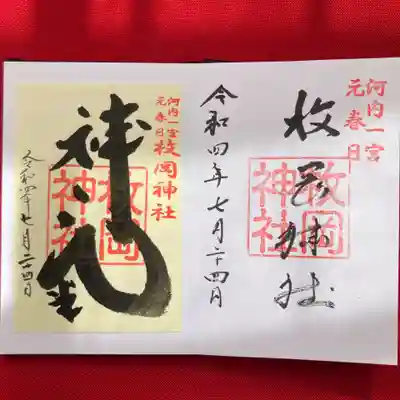 河内一宮
元春日
枚岡神社
枚岡神社
令和四年七月二十四日
河内一宮
元春日
枚岡神社
枚岡神社
令和四年七月二十四日